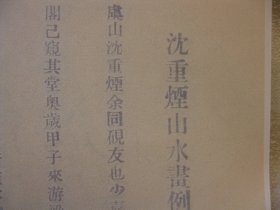 沈重煙山水畫例
虞山沈重煙余同硯友也少
閣己窺其堂奧歲甲子來游